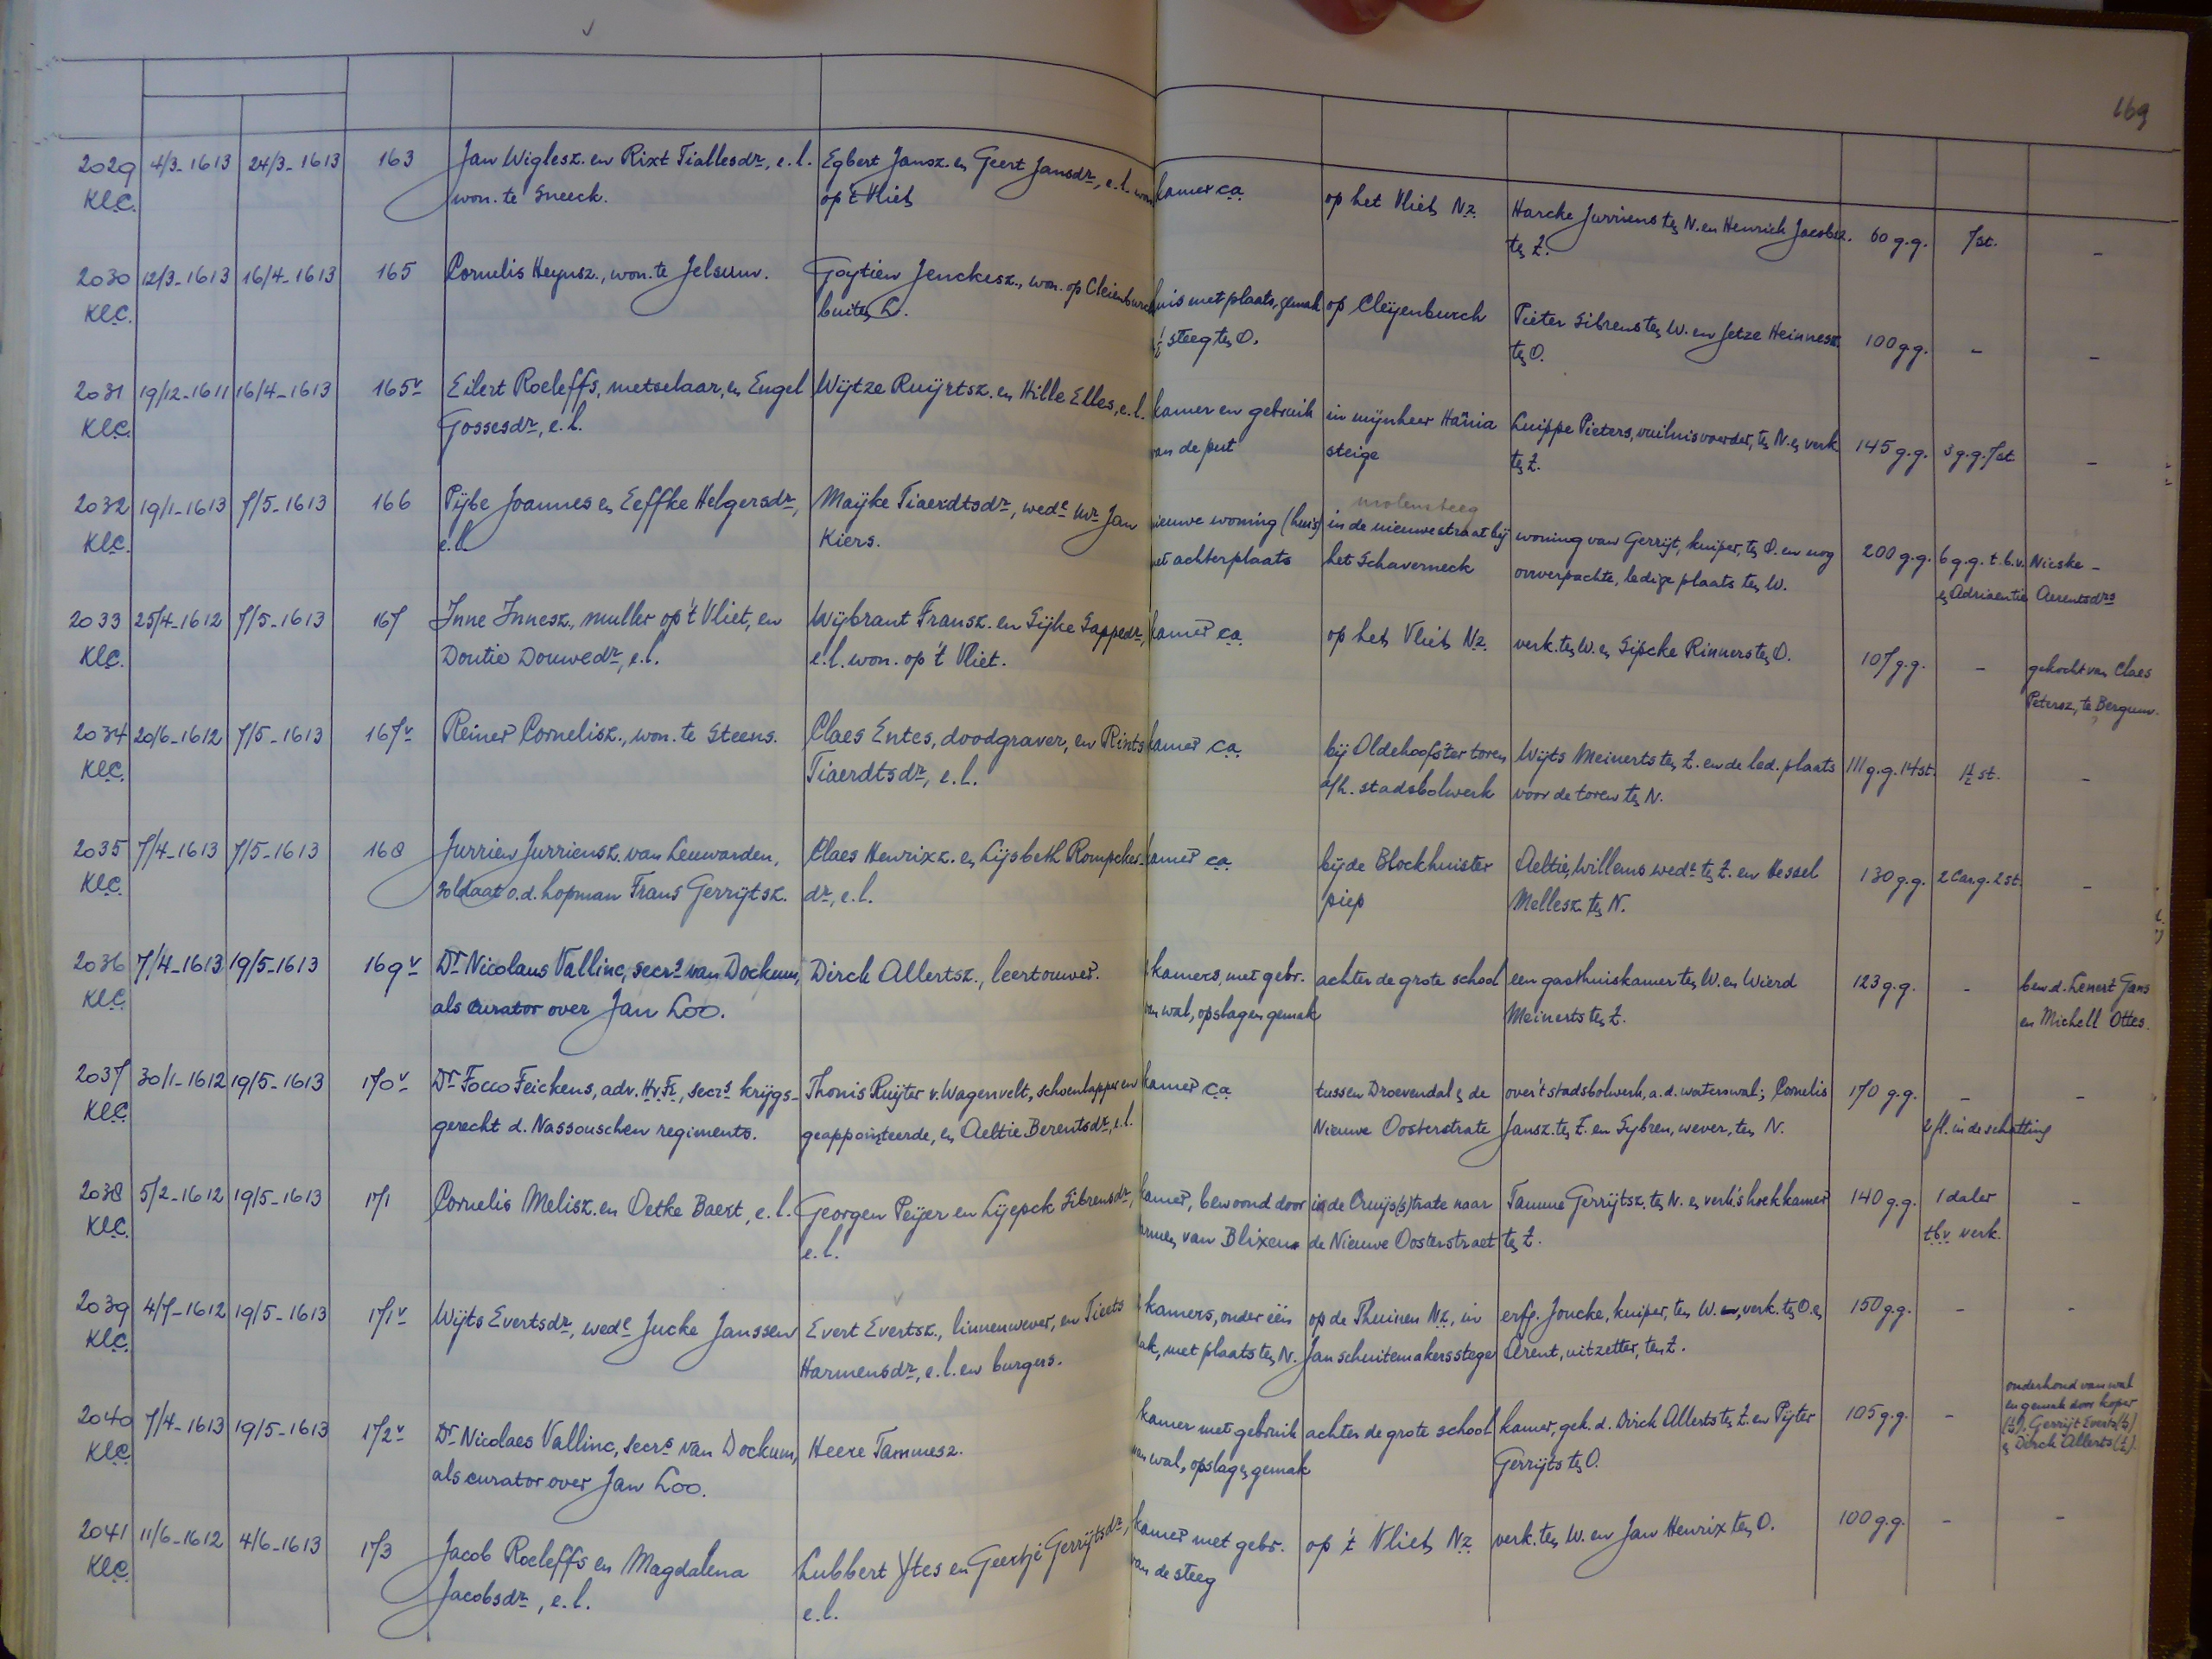 169
2029 4/3-1613 24/3-1613 163 Jan Wiglesz. en Rixt Tiallesdr, e.l. Egbert Jansz. en Geert Jansdr, e.l. won kamer ca. op het Vliet Nz. Harcke Jurriens ten N. en Henrich Jacobsz. 60 g.g. 7 st. -
KLC. won. te Sneeck. op 't Vliet ten Z.
2030 12/3-1613 16/4-1613 165 Cornelis Heynsz., won. te Jelsum. Goytien Jenckesz., won. op Cleienburch huis met plaats, gemak op Cleyenburch Pieter Sibrens ten W. en Jetze Heinnesz. 100 g.g. - -
KLC. buiten L. ½ steeg ten O. ten O.
2031 19/12-1611 16/4-1613 165v Eilert Roeleffs, metselaar, en Engel Wijtze Ruijrtsz. en Hille Elles, e.l. kamer en gebruik in mijnheer Hania Luippe Pieters, vuilnisvoerder, ten N. en verk. 145 g.g. 3 g.g. 7 st -
KLC. Gossesdr, e.l. van de put steige ten Z.
molensteeg
2032 19/1-1613 7/5-1613 166 Pijbe Joannes en Eeffke Helgersdr, Maijke Tiaerdtsdr, wede Mr Jan nieuwe woning (huis) in de nieuwestraat bij woning van Gerrijt, kuiper, ten O. en nog 200 g.g. 6 g.g. t.b.v. Nieske -
KLC. e.l. Kiers. met achterplaats het Schaverneck onverpachte, ledige plaats ten W. en Adriaentie Aerentsdrs
2033 25/4-1612 7/5-1613 167 Inne Innesz., muller op 't Vliet, en Wijbrant Fransz. en Sijke Sappedr, kamer ca. op het Vliet Nz. verk. ten W. en Sipcke Rinners ten O. 107 g.g. - gekocht van Claes
KLC. Doutie Douwedr, e.l. e.l. won. op 't Vliet. Petersz, te Bergum.
2034 20/6-1612 7/5-1613 167v Reiner Cornelisz., won. te Steens. Claes Entes, doodgraver, en Rints kamer ca. bij Oldehoofster toren Wijts Meinerts ten Z. en de led. plaats 111 g.g. 14 st. 1½ st. -
KLC. Tiaerdtsdr, e.l. a/h. stadsbolwerk voor de toren ten N.
2035 7/4-1613 7/5-1613 168 Jurrien Jurriensz. van Leeuwarden, Claes Henrixz. en Lijsbeth Rompcker- kamer ca. bij de Blockhuister Aeltie Willems wede ten Z. en Hessel 130 g.g. 2 car.g. 2 st. -
KLC. soldaat o.d. hopman Frans Gerrijtsz. dr, e.l. piep Mellesz. ten N.
2036 7/4-1613 19/5-1613 169v Dr Nicolaus Vallinc, secrs van Dockum, Dirck Allertsz., leertouwer. kamers, met gebr. achter de grote school een gasthuiskamer ten W. en Wierd 123 g.g. - bew. d. Lenert Jans
KLC. als curator over Jan Loo. van wal, opslag en gemak Meinerts ten Z. en Michell Ottes.
2037 30/1-1612 19/5-1613 170v Dr Focco Feickens, adv. HvFr, secrs krijgs- Thonis Ruijter v. Wagenvelt, schoenlapper en kamer ca. tussen Droevendal en de over 't stadsbolwerk, a.d. waterswal; Cornelis 170 g.g. - -
KLC. gerecht d. Nassouschen regiments. geappointeerde, en Aeltie Berentsdr, e.l. Nieuwe Oosterstrate Jansz. ten Z. en Sybren, wever, ten N. 2 fl. in de schatting
2038 5/2-1612 19/5-1613 171 Cornelis Melisz. en Oetke Baert, e.l. Georgen Peijer en Lijepck Sibrensdr, kamer, bewoond door in de Cruijs(s)trate naar Tamme Gerrijtsz. ten N. en verk.'s hoekkamer 140 g.g. 1 daler -
KLC. e.l. van Blixen de Nieuwe Oosterstraet ten Z. t.b.v. verk.
2039 4/7-1612 19/5-1613 171v Wijts Evertsdr, wede Jucke Janssen Evert Evertsz., linnenwever, en Tiets kamers, onder één op de Thuinen Nz, in erfg. Joucke, kuiper, ten W., verk. ten O. en 150 g.g. - -
KLC. Harmensdr, e.l. en burgers. dak, met plaats ten N. Jan schuitemakersstege Arent, uitzetter, ten Z.
2040 7/4-1613 19/5-1613 172v Dr Nicolaes Vallinc, secrs van Dockum, Heere Tammesz. kamer met gebruik achter de grote school kamer, gek. d. Dirck Allerts ten Z. en Pijter 105 g.g. - onderhoud van wal
KLC. als curator over Jan Loo. van wal, opslag en gemak Gerrijts ten O. en gemak door koper
Gerrijt Everts
en Dirck Allerts
2041 11/6-1612 4/6-1613 173 Jacob Roeleffs en Magdalena Lubbert Ytes en Geertje Gerrijtsdr, kamer met gebr. op 't Vliet Nz verk. ten W. en Jan Henrix ten O. 100 g.g. - -
KLC. Jacobsdr, e.l. e.l. van de steeg